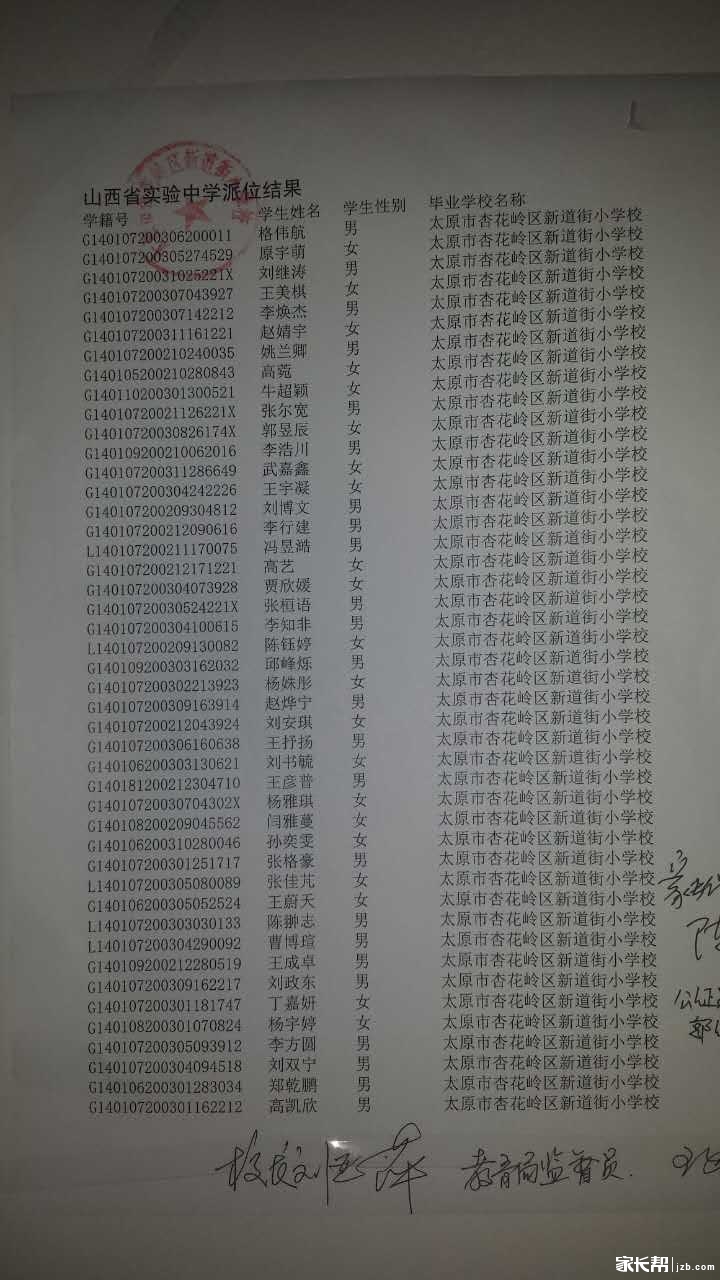 山西省实验中学派位结果
学籍号 学生姓名 学生性别 毕业学校名称
G140107200306200011 格伟航 男 太原市杏花岭区新道街小学校
G140107200305274529 原宇萌 女 太原市杏花岭区新道街小学校
G14010720031025221X 刘继涛 男 太原市杏花岭区新道街小学校
G140107200307043927 王美棋 女 太原市杏花岭区新道街小学校
G140107200307142212 李焕杰 男 太原市杏花岭区新道街小学校
G140107200311161221 赵婧宇 女 太原市杏花岭区新道街小学校
G140107200210240035 姚兰卿 男 太原市杏花岭区新道街小学校
G140105200210280843 高菀 女 太原市杏花岭区新道街小学校
G140110200301300521 牛超颖 女 太原市杏花岭区新道街小学校
G14010720021126221X 张尔宽 男 太原市杏花岭区新道街小学校
G14010720030826174X 郭昱辰 女 太原市杏花岭区新道街小学校
G140109200210062016 李浩川 男 太原市杏花岭区新道街小学校
G140107200311286649 武嘉鑫 女 太原市杏花岭区新道街小学校
G140107200304242226 王宇凝 女 太原市杏花岭区新道街小学校
G140107200209304812 刘博文 男 太原市杏花岭区新道街小学校
G140107200212090616 李行建 男 太原市杏花岭区新道街小学校
L140107200211170075 冯昱澔 男 太原市杏花岭区新道街小学校
G140107200212171221 高艺 女 太原市杏花岭区新道街小学校
G140107200304073928 贾欣媛 女 太原市杏花岭区新道街小学校
G14010720030524221X 张桓语 男 太原市杏花岭区新道街小学校
G140107200304100615 李知非 男 太原市杏花岭区新道街小学校
L140107200209130082 陈钰婷 女 太原市杏花岭区新道街小学校
G140109200303162032 邱峰烁 男 太原市杏花岭区新道街小学校
G140107200302213923 杨姝彤 女 太原市杏花岭区新道街小学校
G140107200309163914 赵烨宁 男 太原市杏花岭区新道街小学校
G140107200212043924 刘安琪 女 太原市杏花岭区新道街小学校
G140107200306160638 王抒扬 男 太原市杏花岭区新道街小学校
G140106200303130621 刘书毓 女 太原市杏花岭区新道街小学校
G140181200212304710 王彦普 男 太原市杏花岭区新道街小学校
G14010720030704302X 杨雅琪 女 太原市杏花岭区新道街小学校
G140108200209045562 闫雅蔓 女 太原市杏花岭区新道街小学校
G140106200310280046 孙奕雯 女 太原市杏花岭区新道街小学校
G140107200301251717 张格豪 男 太原市杏花岭区新道街小学校
L140107200305080089 张佳芃 女 太原市杏花岭区新道街小学校
G140106200305052524 王蔚天 女 太原市杏花岭区新道街小学校
L140107200303030133 陈翀志 男 太原市杏花岭区新道街小学校
L140107200304290092 曹博瑄 男 太原市杏花岭区新道街小学校
G140109200212280519 王成卓 男 太原市杏花岭区新道街小学校
G140107200309162217 刘政东 男 太原市杏花岭区新道街小学校
G140107200301181747 丁嘉妍 女 太原市杏花岭区新道街小学校
G140108200301070824 杨宇婷 女 太原市杏花岭区新道街小学校
G140107200305093912 李方圆 男 太原市杏花岭区新道街小学校
G140107200304094518 刘双宁 男 太原市杏花岭区新道街小学校
G140106200301283034 郑乾鹏 男 太原市杏花岭区新道街小学校
G140107200301162212 高凯欣 男 太原市杏花岭区新道街小学校
公证
校长 教育局监督员.
家长帮 jzb.com